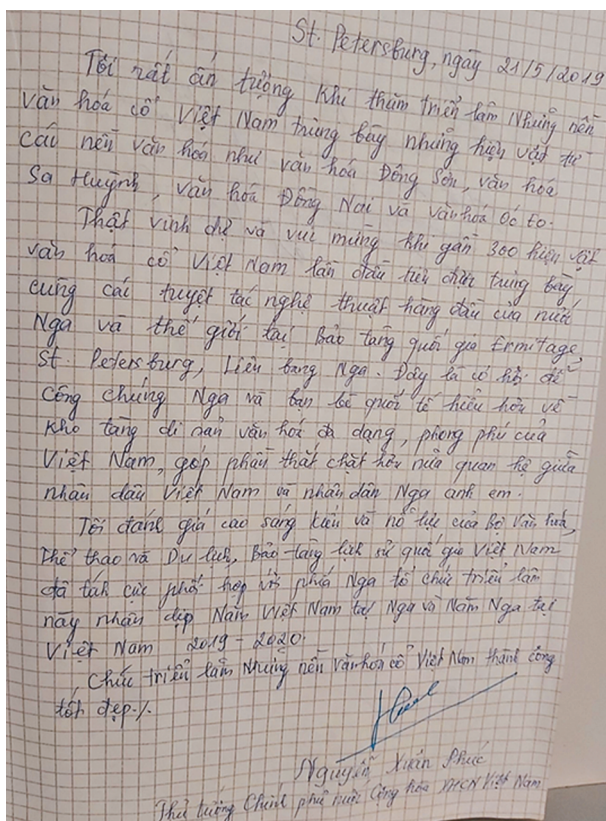 St. Petersburg, ngày 21/5/2019
Tôi rất ấn tượng khi thăm triển lãm Những nền
văn hóa cổ Việt Nam trưng bày những hiện vật từ
các nền văn hoá như văn hoá Đông Sơn, văn hoá
Sa Huỳnh, văn hoá Đồng Nai và văn hoá Óc Eo.
Thật vinh dự và vui mừng khi gần 300 hiện vật
văn hoá cổ Việt Nam lần đầu tiên được trưng bày
cùng các tuyệt tác nghệ thuật hàng đầu của nước
Nga và thế giới tại Bảo tàng quốc gia Ermitage,
St. Petersburg, Liên bang Nga. Đây là cơ hội để
công chúng Nga và bạn bè quốc tế hiểu hơn về
kho tàng di sản văn hoá đa dạng, phong phú của
Việt Nam, góp phần thắt chặt hơn nữa quan hệ giữa
nhân dân Việt Nam và nhân dân Nga anh em.
Tôi đánh giá cao sáng kiến và nỗ lực của Bộ Văn hoá,
Thể thao và Du lịch, Bảo tàng lịch sử quốc gia Việt Nam
đã tích cực phối hợp với phía Nga tổ chức triển lãm
này nhân dịp Năm Việt Nam tại Nga và Năm Nga tại
Việt Nam 2019 - 2020.
Chúc triển lãm Những nền văn hoá cổ Việt Nam thành công
tốt đẹp./.
Nguyễn Xuân Phúc
Thủ tướng Chính phủ nước Cộng hòa XHCN Việt Nam